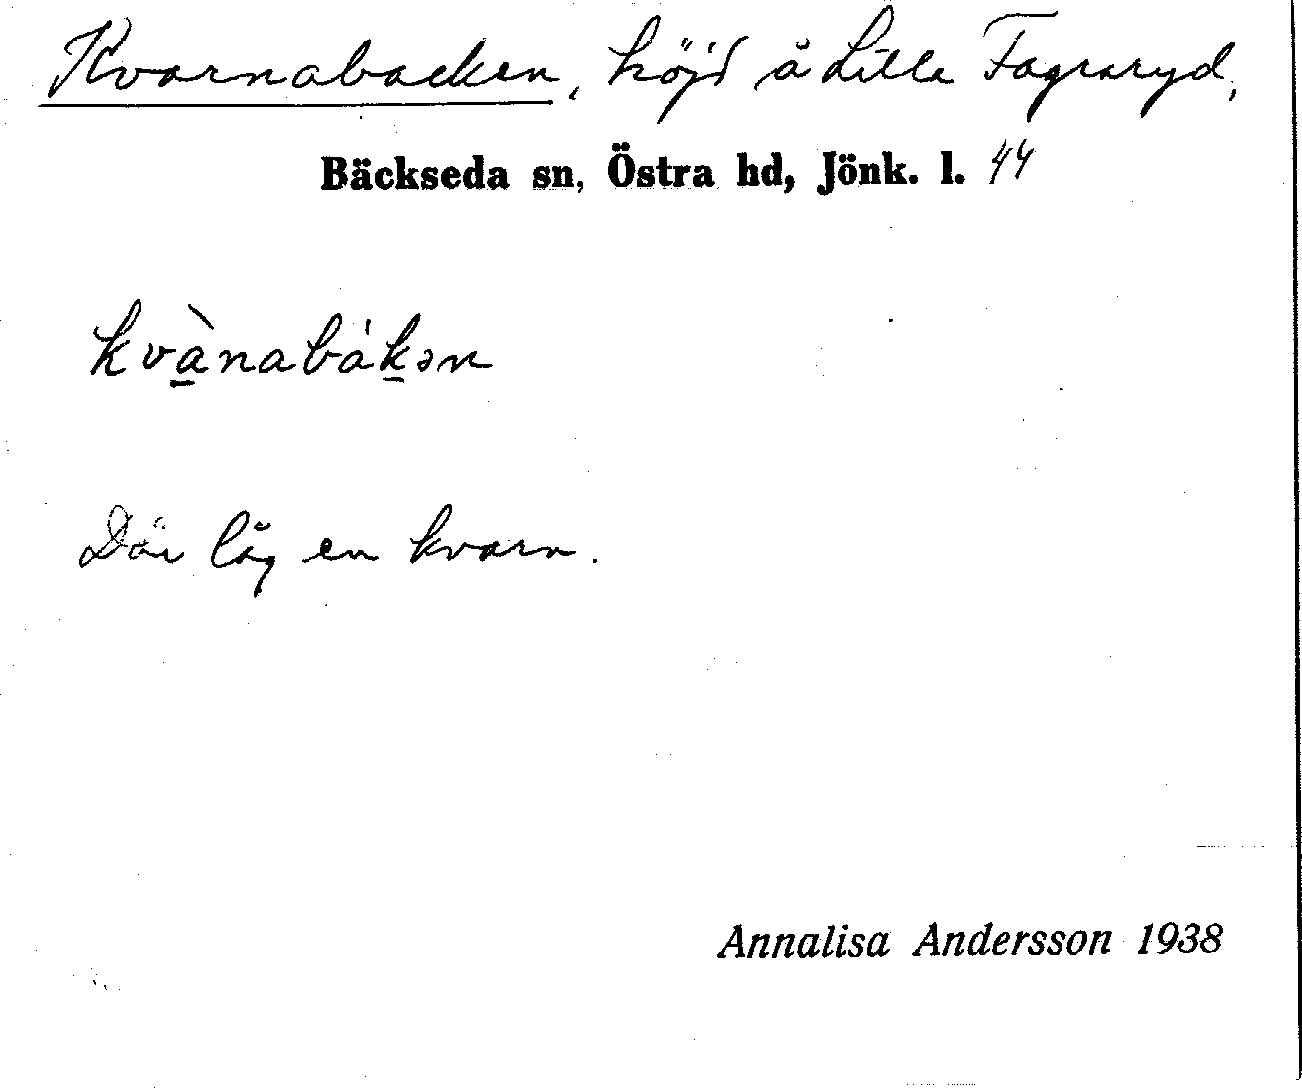 Kvarnabacken, höjd å Lilla Fagraryd,
Bäckseda sn, Östra hd, Jönk. l. 44
kvànabákən
Där låg en kvarn.
Annalisa Andersson 1938